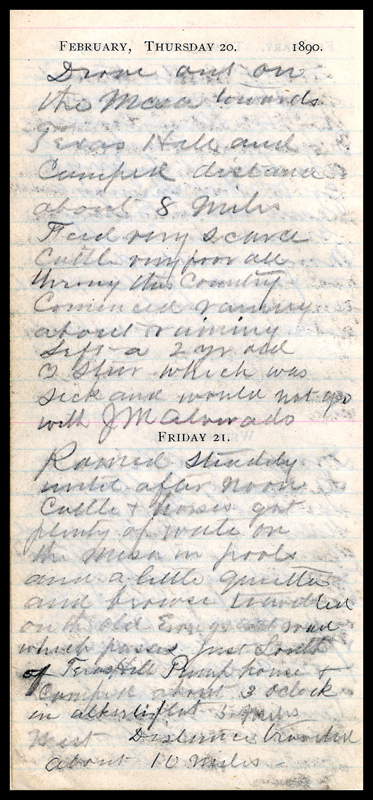 FEBRUARY, THURSDAY 20. 1890.
Drove out on
the Mesa towards
Texas Hill and
Camped distance
about 8 Miles
Feed very scarce
Cattle very poor all
throug this Country
Commenced raining
about raining
Left a 2 yr old
Steer which was
Sick and would not go
with J M Alvorado
FRIDAY 21.
Rained Steadily
until after Noon
Cattle & horses got
plenty of water on
the Mesa in pools
and a little
and browse travelled
on the old Emigrant road
which passes just South
of Texas Hill Pump house &
Camped about 3 oclock
in alkali flat 5 Miles
West Distance travelled
about 10 Miles